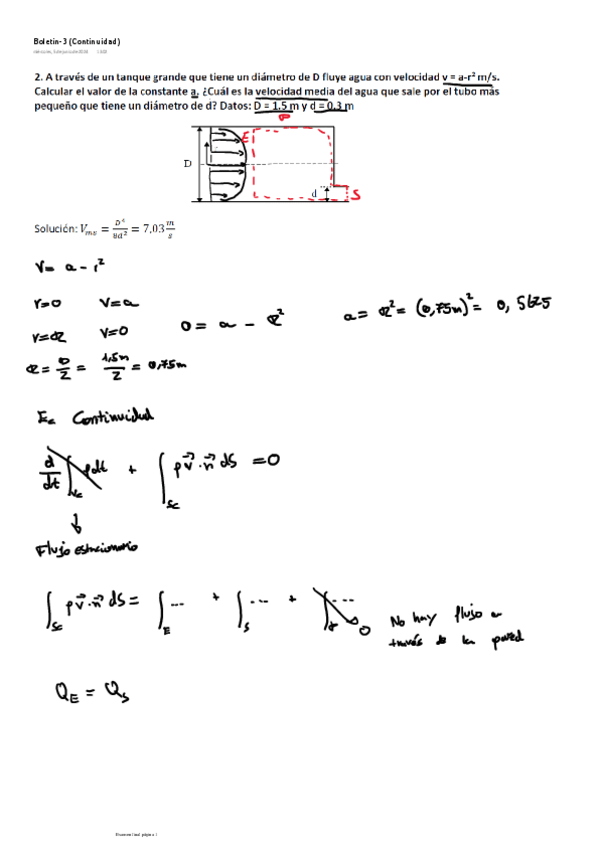 Boletín-3 (Continuidad)
2. A través de un tanque grande que tiene un diámetro de D fluye agua con velocidad v = a-r² m/s.
Calcular el valor de la constante a. ¿Cuál es la velocidad media del agua que sale por el tubo más
pequeño que tiene un diámetro de d? Datos: D = 1.5 m y d = 0.3 m
E
D
d
S
Solución: V_ms = D⁴/8d² = 7,03 m/s
V = a - r²
r=0 V=a
r=R V=0 0 = a - R² a = R² = (0,75m)² = 0,5625
R = D/2 = 1,5m/2 = 0,75m
Ec Continuidad
d/dt ∫_Vc ρdτ + ∫_Sc ρv⃗·n⃗ dS = 0
↓
Flujo estacionario
∫_Sc ρv⃗·n⃗ dS = ∫_E ... + ∫_S ... + ∫ ... 0
No hay flujo a
través de la pared
Q_E = Q_S